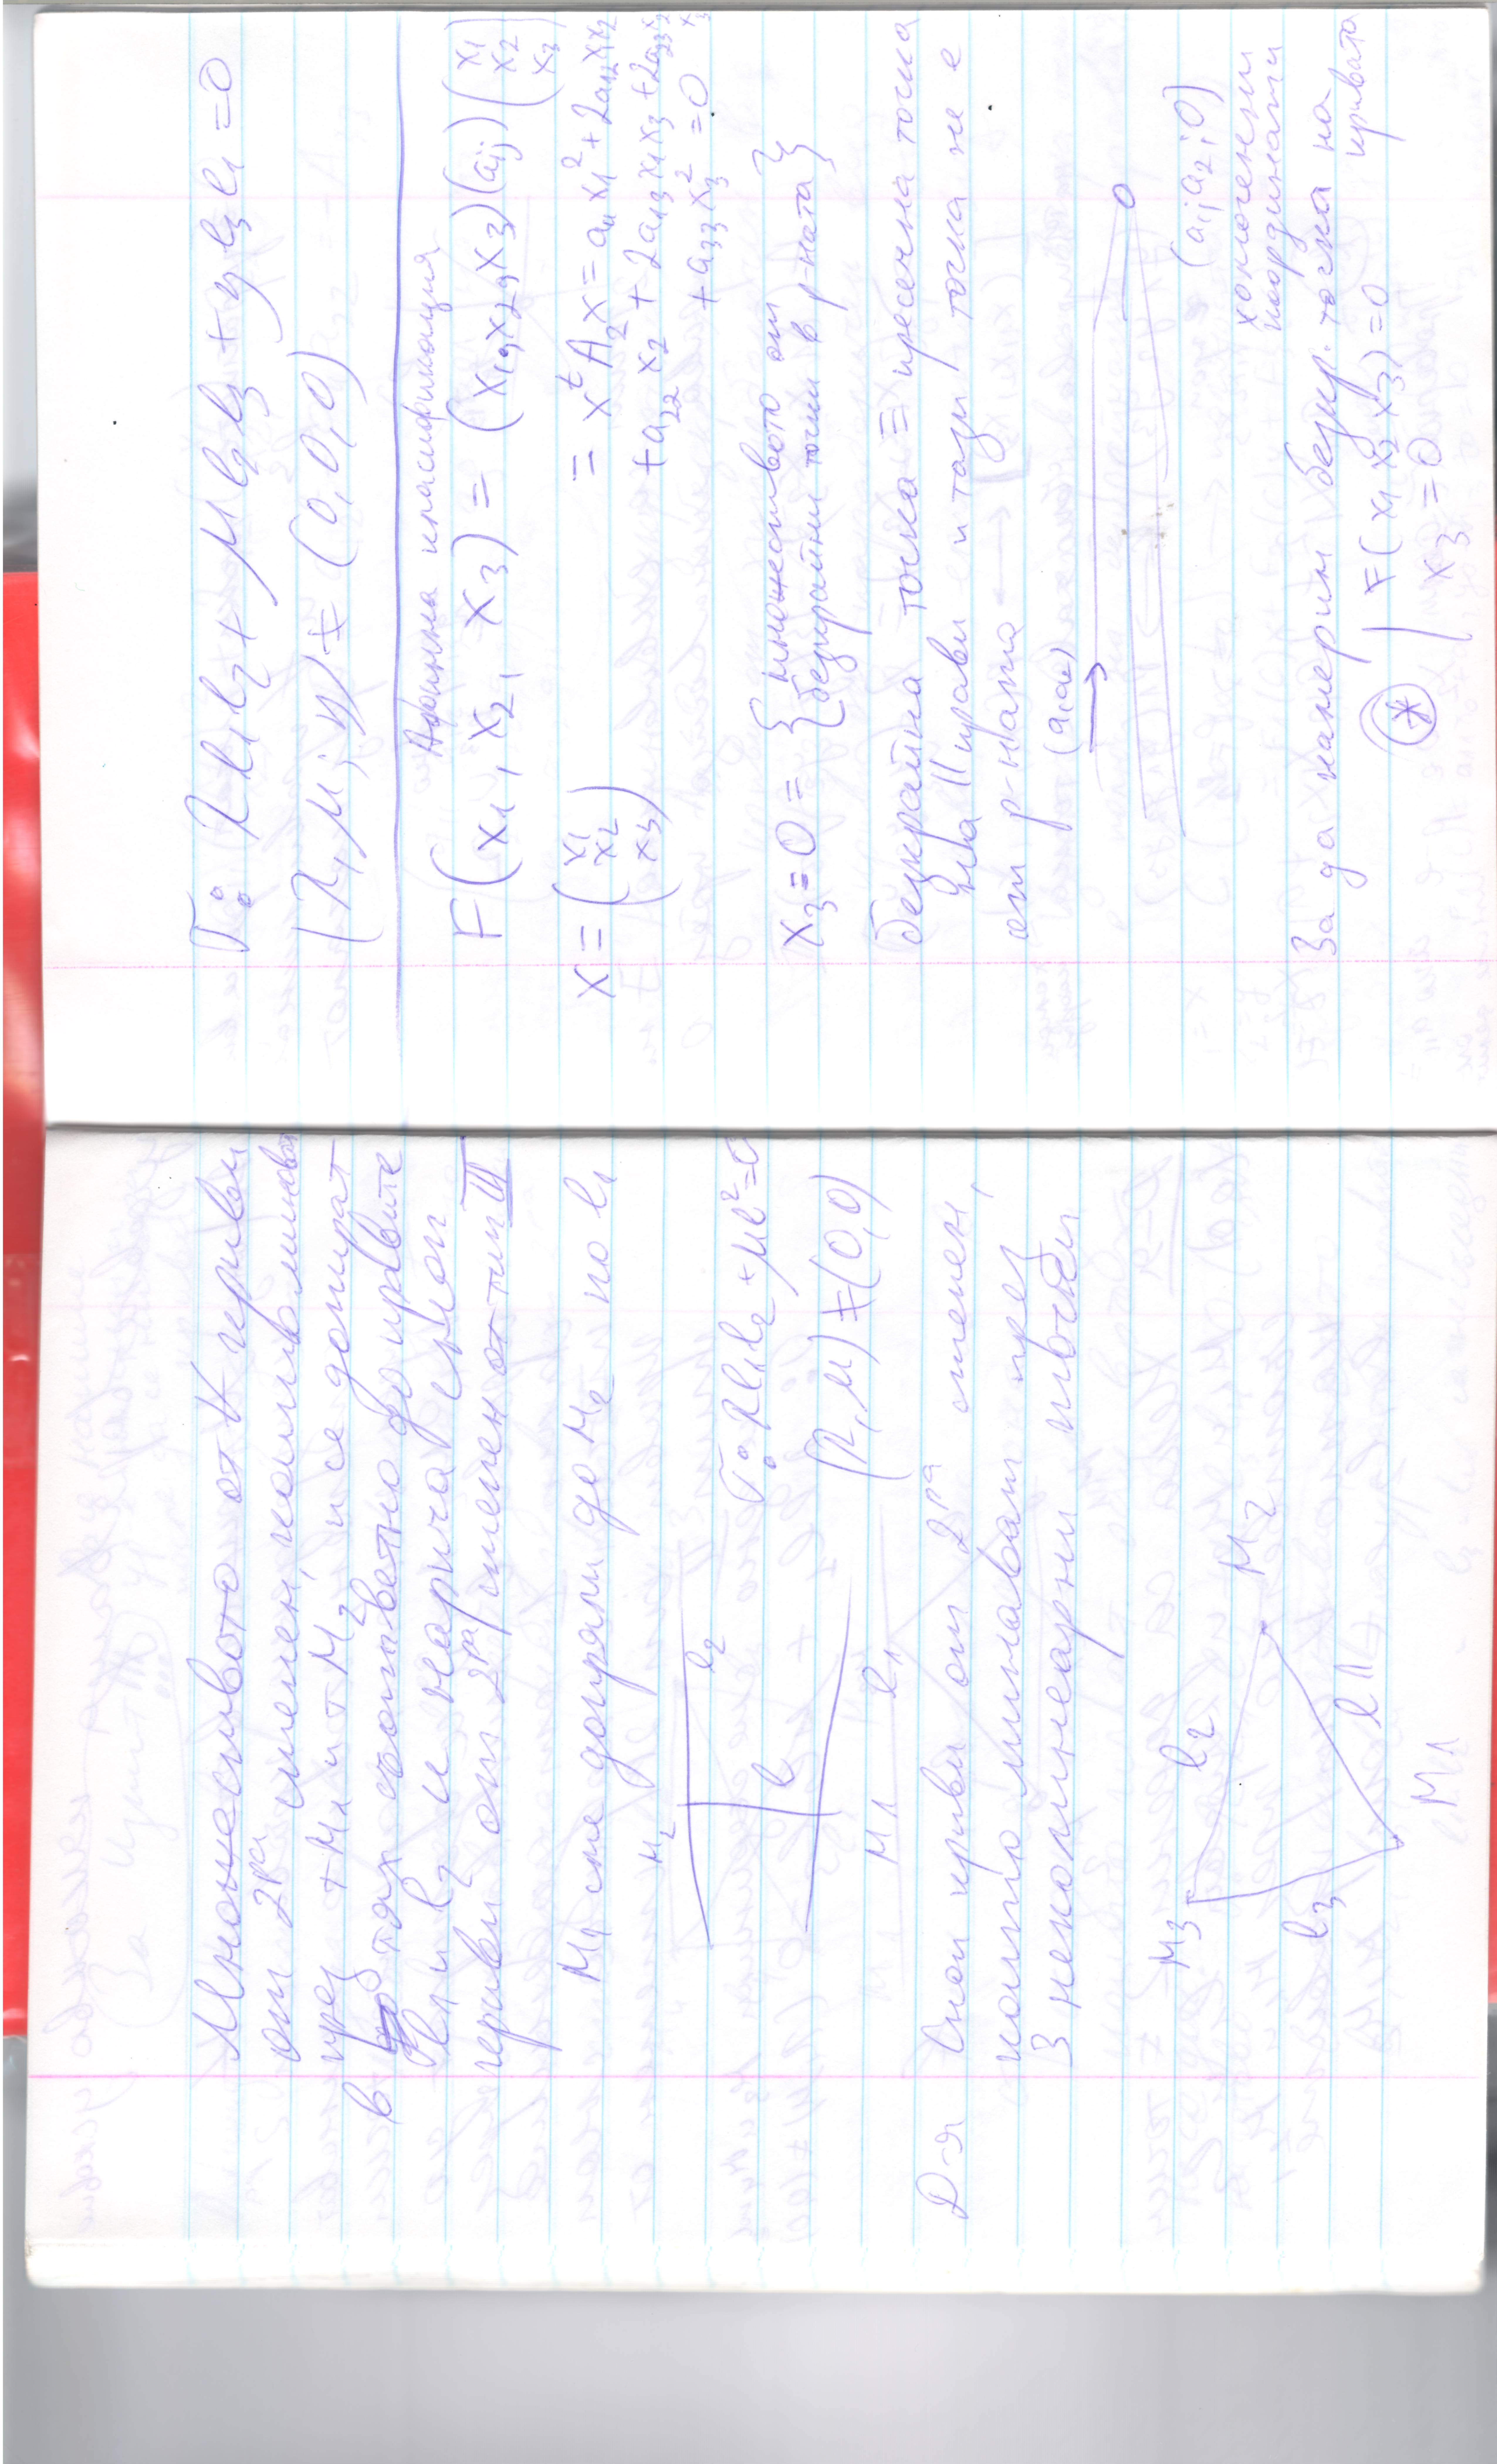 Множеството от ∀ криви
от 2ра степен, които минават
през т M₁ и т M₂ и се допират
в тях съответно до правите
l₁ и l₂ се нарича сноп
криви от 2ра степен от тип III
M₁ сме допряли до M₂ по l₁
M₂
l₂
l
M₁
l₁
Г: λl₁l₂ + μl² = 0
(λ, μ) ≠ (0,0)
Д-я Сноп криви от 2ра степен,
които минават през
3 неколинеарни точки
M₃
l₂
M₂
l₃
l₁
M₁
Г: λl₁l₂ + μl₂l₃ + νl₃l₁ = 0
(λ, μ, ν) ≠ (0,0,0)
Афинна класификация
F(x₁, x₂, x₃) = (x₁, x₂, x₃)(aᵢⱼ)(x₁ x₂ x₃)
x = (x₁ x₂ x₃) = xᵗA₂x = a₁₁x₁² + 2a₁₂x₁x₂
+ a₂₂x₂ + 2a₁₃x₁x₃ + 2a₂₃x₂x₃
+ a₃₃x₃² = 0
x₃ = 0 = {множеството от
безкрайни точки в р-ната}
безкрайна точка ≡ пресечна точка
на 2 || прави и тази точка не е
от р-ната
(a₁, a₂)
(a₁, a₂, 0)
хомогенни
координати
За да намерим безкр. точка на
кривата
(*) | F(x₁ x₂ x₃) = 0
| x₃ = 0